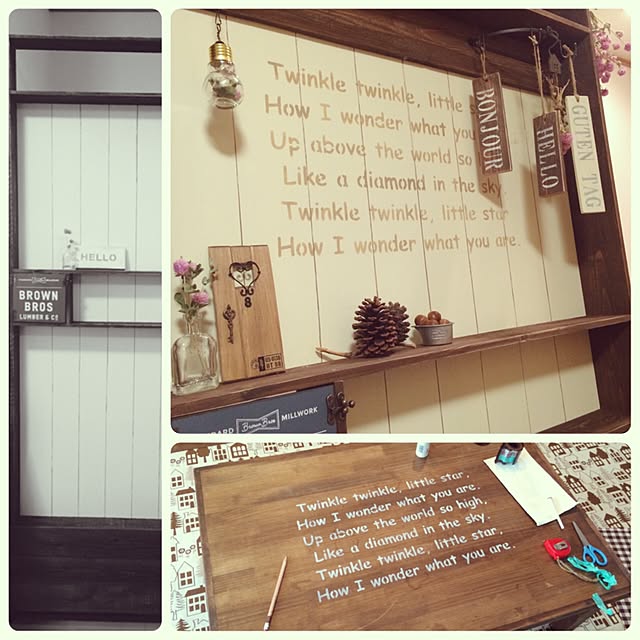 HELLO
BROWN
BROS
LUMBER & CO
Twinkle twinkle, little s
How I wonder what you
Up above the world so
Like a diamond in the sky.
Twinkle twinkle, little star
How I wonder what you are.
BONJOUR
HELLO
GUTEN TAG
8
Brown Bros
MILLWORK
Twinkle twinkle, little star,
How I wonder what you are.
Up above the world so high,
Like a diamond in the sky.
Twinkle twinkle, little star,
How I wonder what you are.